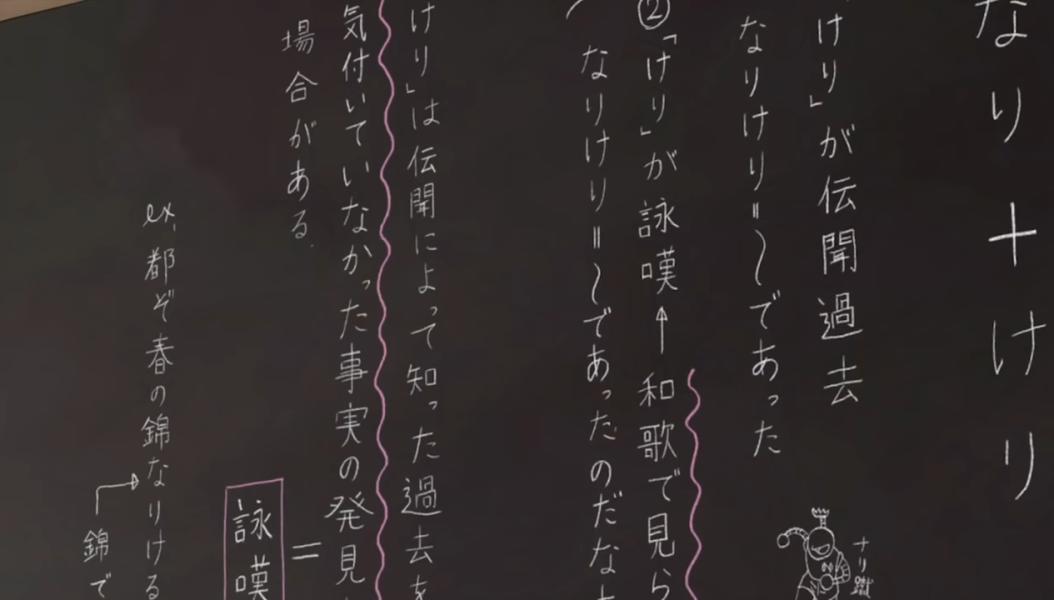 なり＋けり
けり」が伝聞過去
なりけり＝〜であった
②「けり」が詠嘆←和歌で見ら
なりけり＝〜であったのだな
けり」は伝聞によって知った過去を
気付いていなかった事実の発見
場合がある.
＝
詠嘆
ex, 都ぞ春の錦なりける
錦で
ナリ蹴